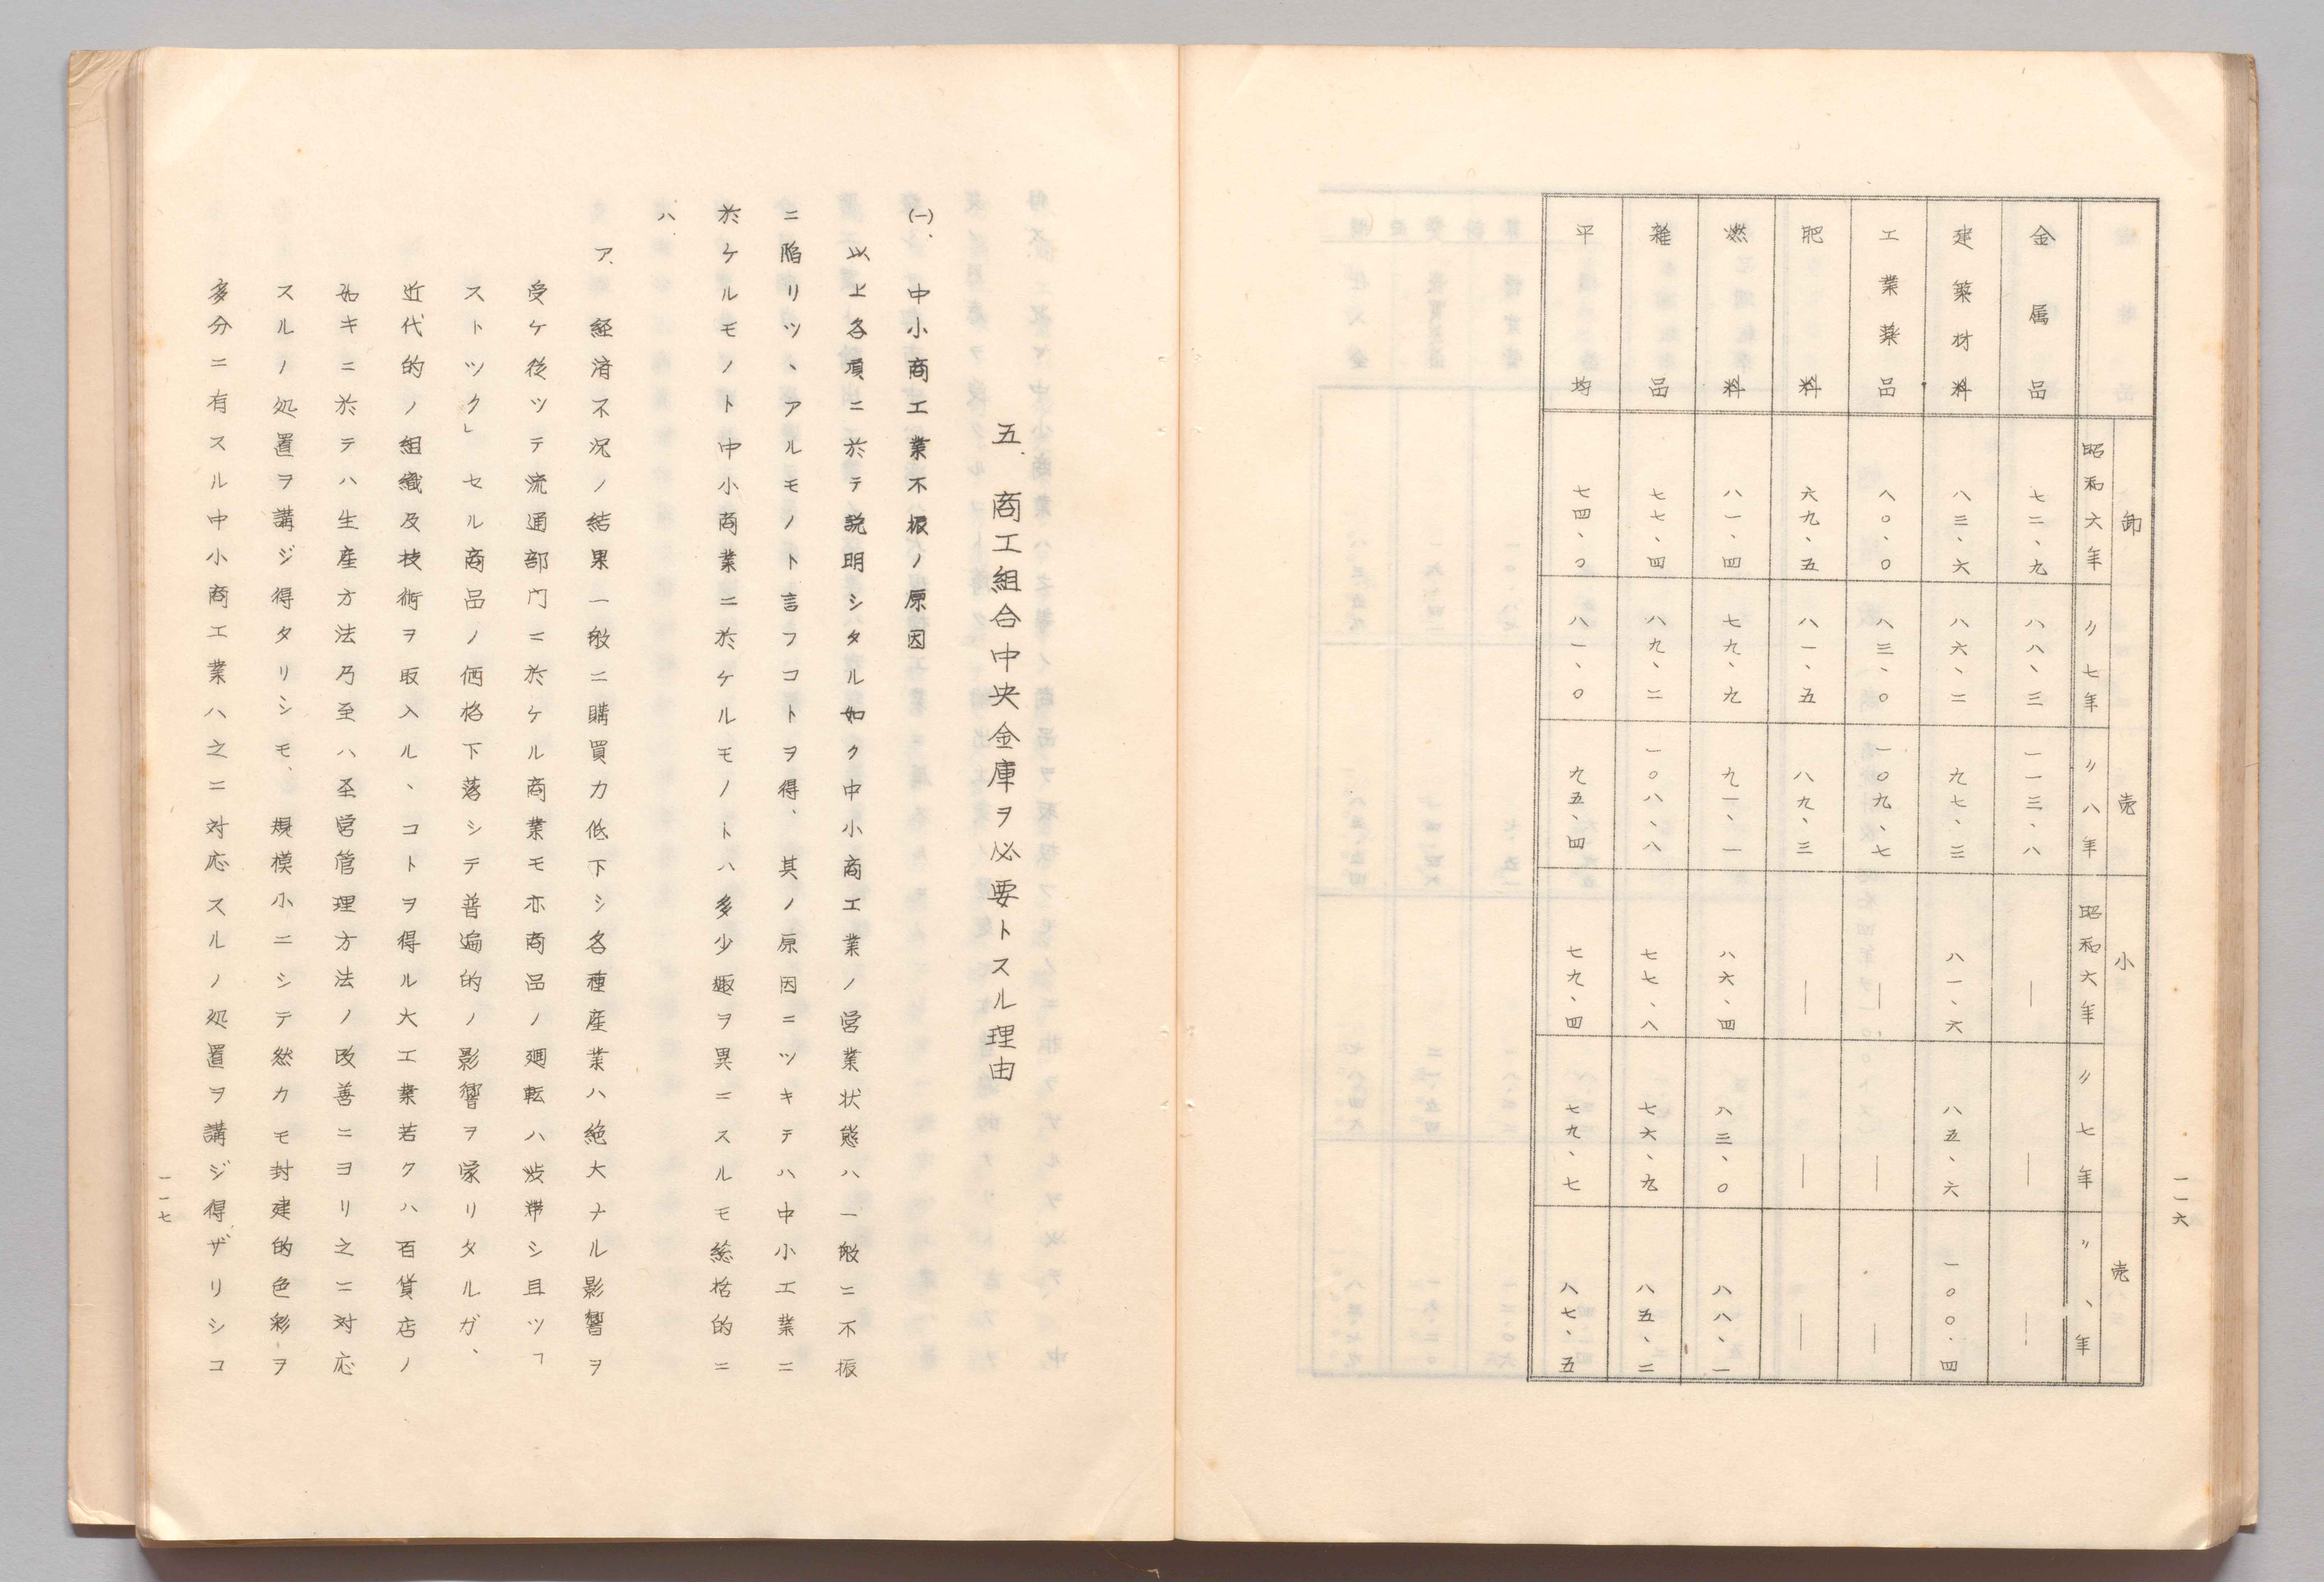 一一六
卸売 小売
昭和六年 〃七年 〃八年 昭和六年 〃七年 〃、年
金属品 七二、九 八八、三 一一三、八 ― ― ―
建築材料 八三、六 八六、二 九七、三 八一、六 八五、六 一〇〇、四
工業薬品 八〇、〇 八三、〇 一〇九、七 ― ― ―
肥料 六九、五 八一、五 八九、三 ― ― ―
燃料 八一、四 七九、九 九一、一 八六、四 八三、〇 八八、一
雑品 七七、四 八九、二 一〇八、八 七七、八 七六、九 八五、二
平均 七四、〇 八一、〇 九五、四 七九、四 七九、七 八七、五
五、商工組合中央金庫ヲ必要トスル理由
(一)、中小商工業不振ノ原因
以上各項ニ於テ説明シタル如ク中小商工業ノ営業状態ハ一般ニ不振
ニ陥リツヽアルモノト言フコトヲ得、其ノ原因ニツキテハ中小工業ニ
於ケルモノト中小商業ニ於ケルモノトハ多少趣ヲ異ニスルモ総括的ニ
ハ、
ア、経済不況ノ結果一般ニ購買力低下シ各種産業ハ絶大ナル影響ヲ
受ケ従ツテ流通部門ニ於ケル商業モ亦商品ノ廻転ハ渋滞シ且ツ「
ストツク」セル商品ノ価格下落シテ普遍的ノ影響ヲ蒙リタルガ、
近代的ノ組織及技術ヲ取入ルヽコトヲ得ル大工業若クハ百貨店ノ
如キニ於テハ生産方法乃至ハ圣営管理方法ノ改善ニヨリ之ニ対応
スルノ処置ヲ講ジ得タリシモ、規模小ニシテ然カモ封建的色彩ヲ
多分ニ有スル中小商工業ハ之ニ対応スルノ処置ヲ講ジ得ザリシコ
一一七